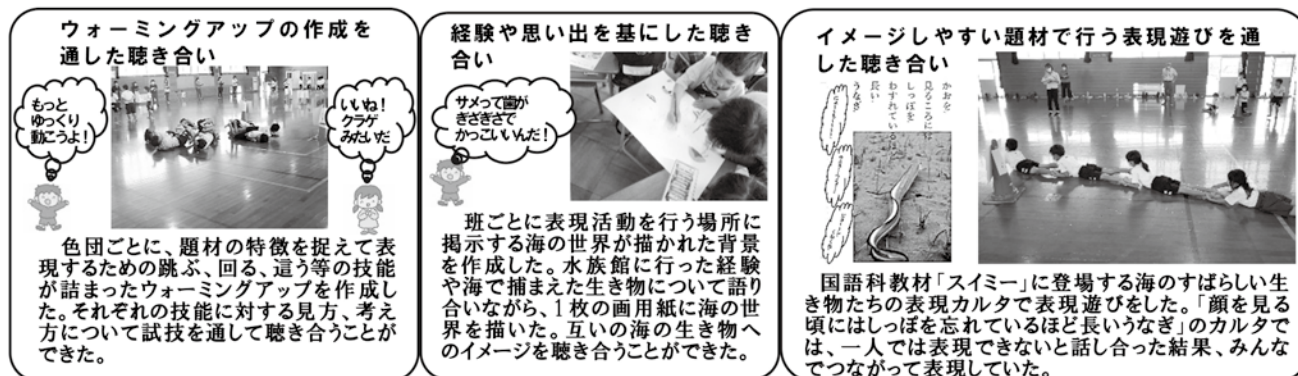 ウォーミングアップの作成を
通した聴き合い
もっと
ゆっくり
動こうよ！
いいね！
クラゲ
みたいだ
色団ごとに、題材の特徴を捉えて表
現するための跳ぶ、回る、這う等の技能
が詰まったウォーミングアップを作成し
た。それぞれの技能に対する見方、考え
方について試技を通して聴き合うことが
できた。
経験や思い出を基にした聴き
合い
サメって歯が
ぎざぎざで
かっこいいんだ！
班ごとに表現活動を行う場所に
掲示する海の世界が描かれた背景
を作成した。水族館に行った経験
や海で捕まえた生き物について語り
合いながら、1枚の画用紙に海の世
界を描いた。互いの海の生き物へ
のイメージを聴き合うことができた。
イメージしやすい題材で行う表現遊びを通
した聴き合い
かおを
見るころには
しっぽを
わすれている
長い
うなぎ
国語科教材「スイミー」に登場する海のすばらしい生
き物たちの表現カルタで表現遊びをした。「顔を見る
頃にはしっぽを忘れているほど長いうなぎ」のカルタで
は、一人では表現できないと話し合った結果、みんな
でつながって表現していた。